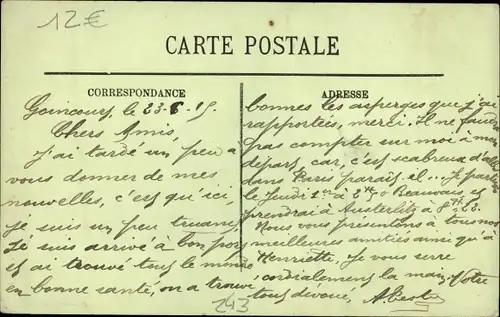 12€
CARTE POSTALE
CORRESPONDANCE
Goincourt, le 23-6-15
Chers Amis,
J'ai tardé un peu à
vous donner de mes
nouvelles, c'est qu'ici,
je suis un peu
Je suis arrivé à bon port
et ai trouvé tout le monde
en bonne santé, on a trouvé
243
ADRESSE
bonnes les asperges que j'ai
rapportées, merci. Il ne faudra
pas compter sur moi à mon
départ, car, c'est scabreux d'aller
dans Paris paraît-il... Je partirai
le Jeudi 1er à Beauvais et
prendrai à Austerlitz à
Nous vous présentons à tous nos
meilleures amitiés ainsi qu'à
Henriette. Je vous serre
cordialement la main, Votre
tout dévoué,